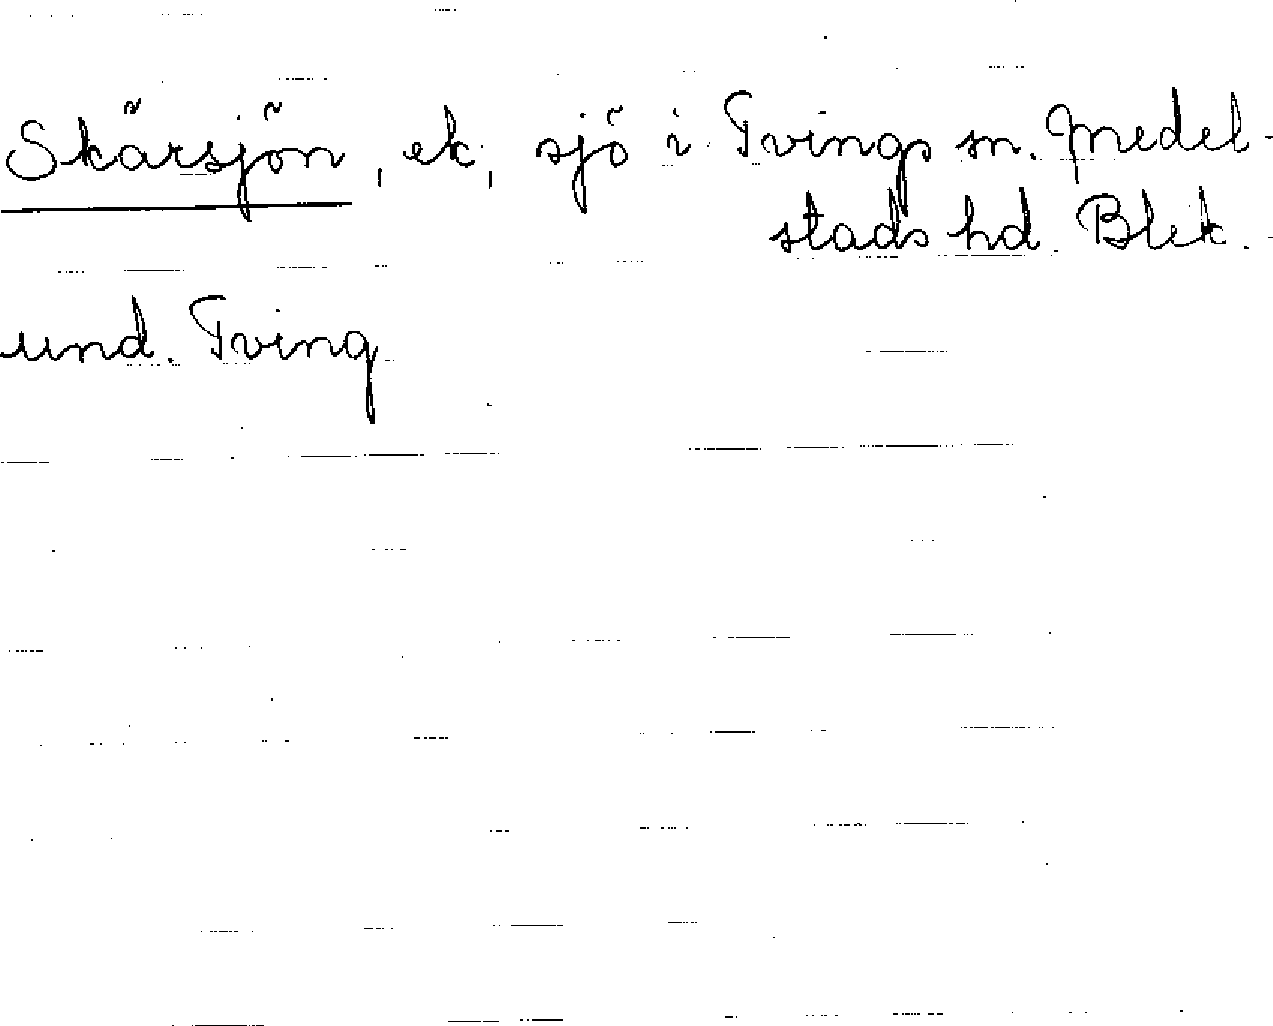 Skärsjön, ek, sjö i Tvings sn. Medel-
stads hd. Blek.
und. Tving